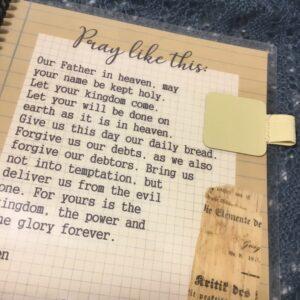 Pray like this:
Our Father in heaven, may
your name be kept holy.
Let your kingdom come.
Let your will be done on
earth as it is in heaven.
Give us this day our daily bread.
Forgive us our debts, as we also
forgive our debtors. Bring us
not into temptation, but
deliver us from the evil
one. For yours is the
kingdom, the power and
the glory forever.
Elemente de
Kritik des